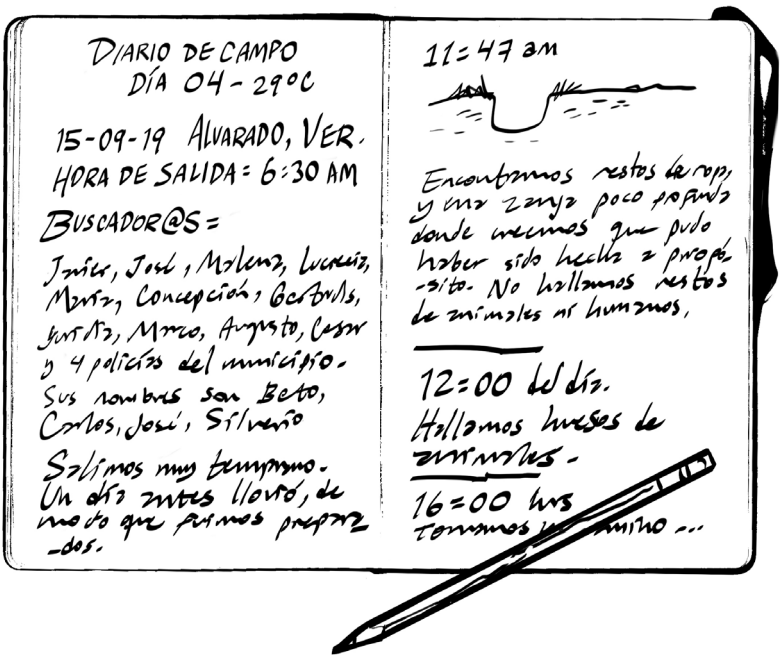 DIARIO DE CAMPO
DÍA 04 - 29°C
15-09-19 ALVARADO, VER.
HORA DE SALIDA = 6:30 AM
BUSCADOR@S =
Javier, José, Malena, Lucrecia,
María, Concepción, Gertrudis,
Yuridia, Marco, Augusto, Cesar
y 4 policías del municipio.
Sus nombres son Beto,
Carlos, José, Silverio
Salimos muy temprano.
Un día antes llovió, de
modo que fuimos prepara-
-dos.
11=47 am
Encontramos restos de ropa,
y una zanja poco profunda
donde creemos que pudo
haber sido hecha a propó-
-sito. No hallamos restos
de animales ni humanos.
12=00 del día.
Hallamos huesos de
animales.
16=00 hrs
Tomamos ...